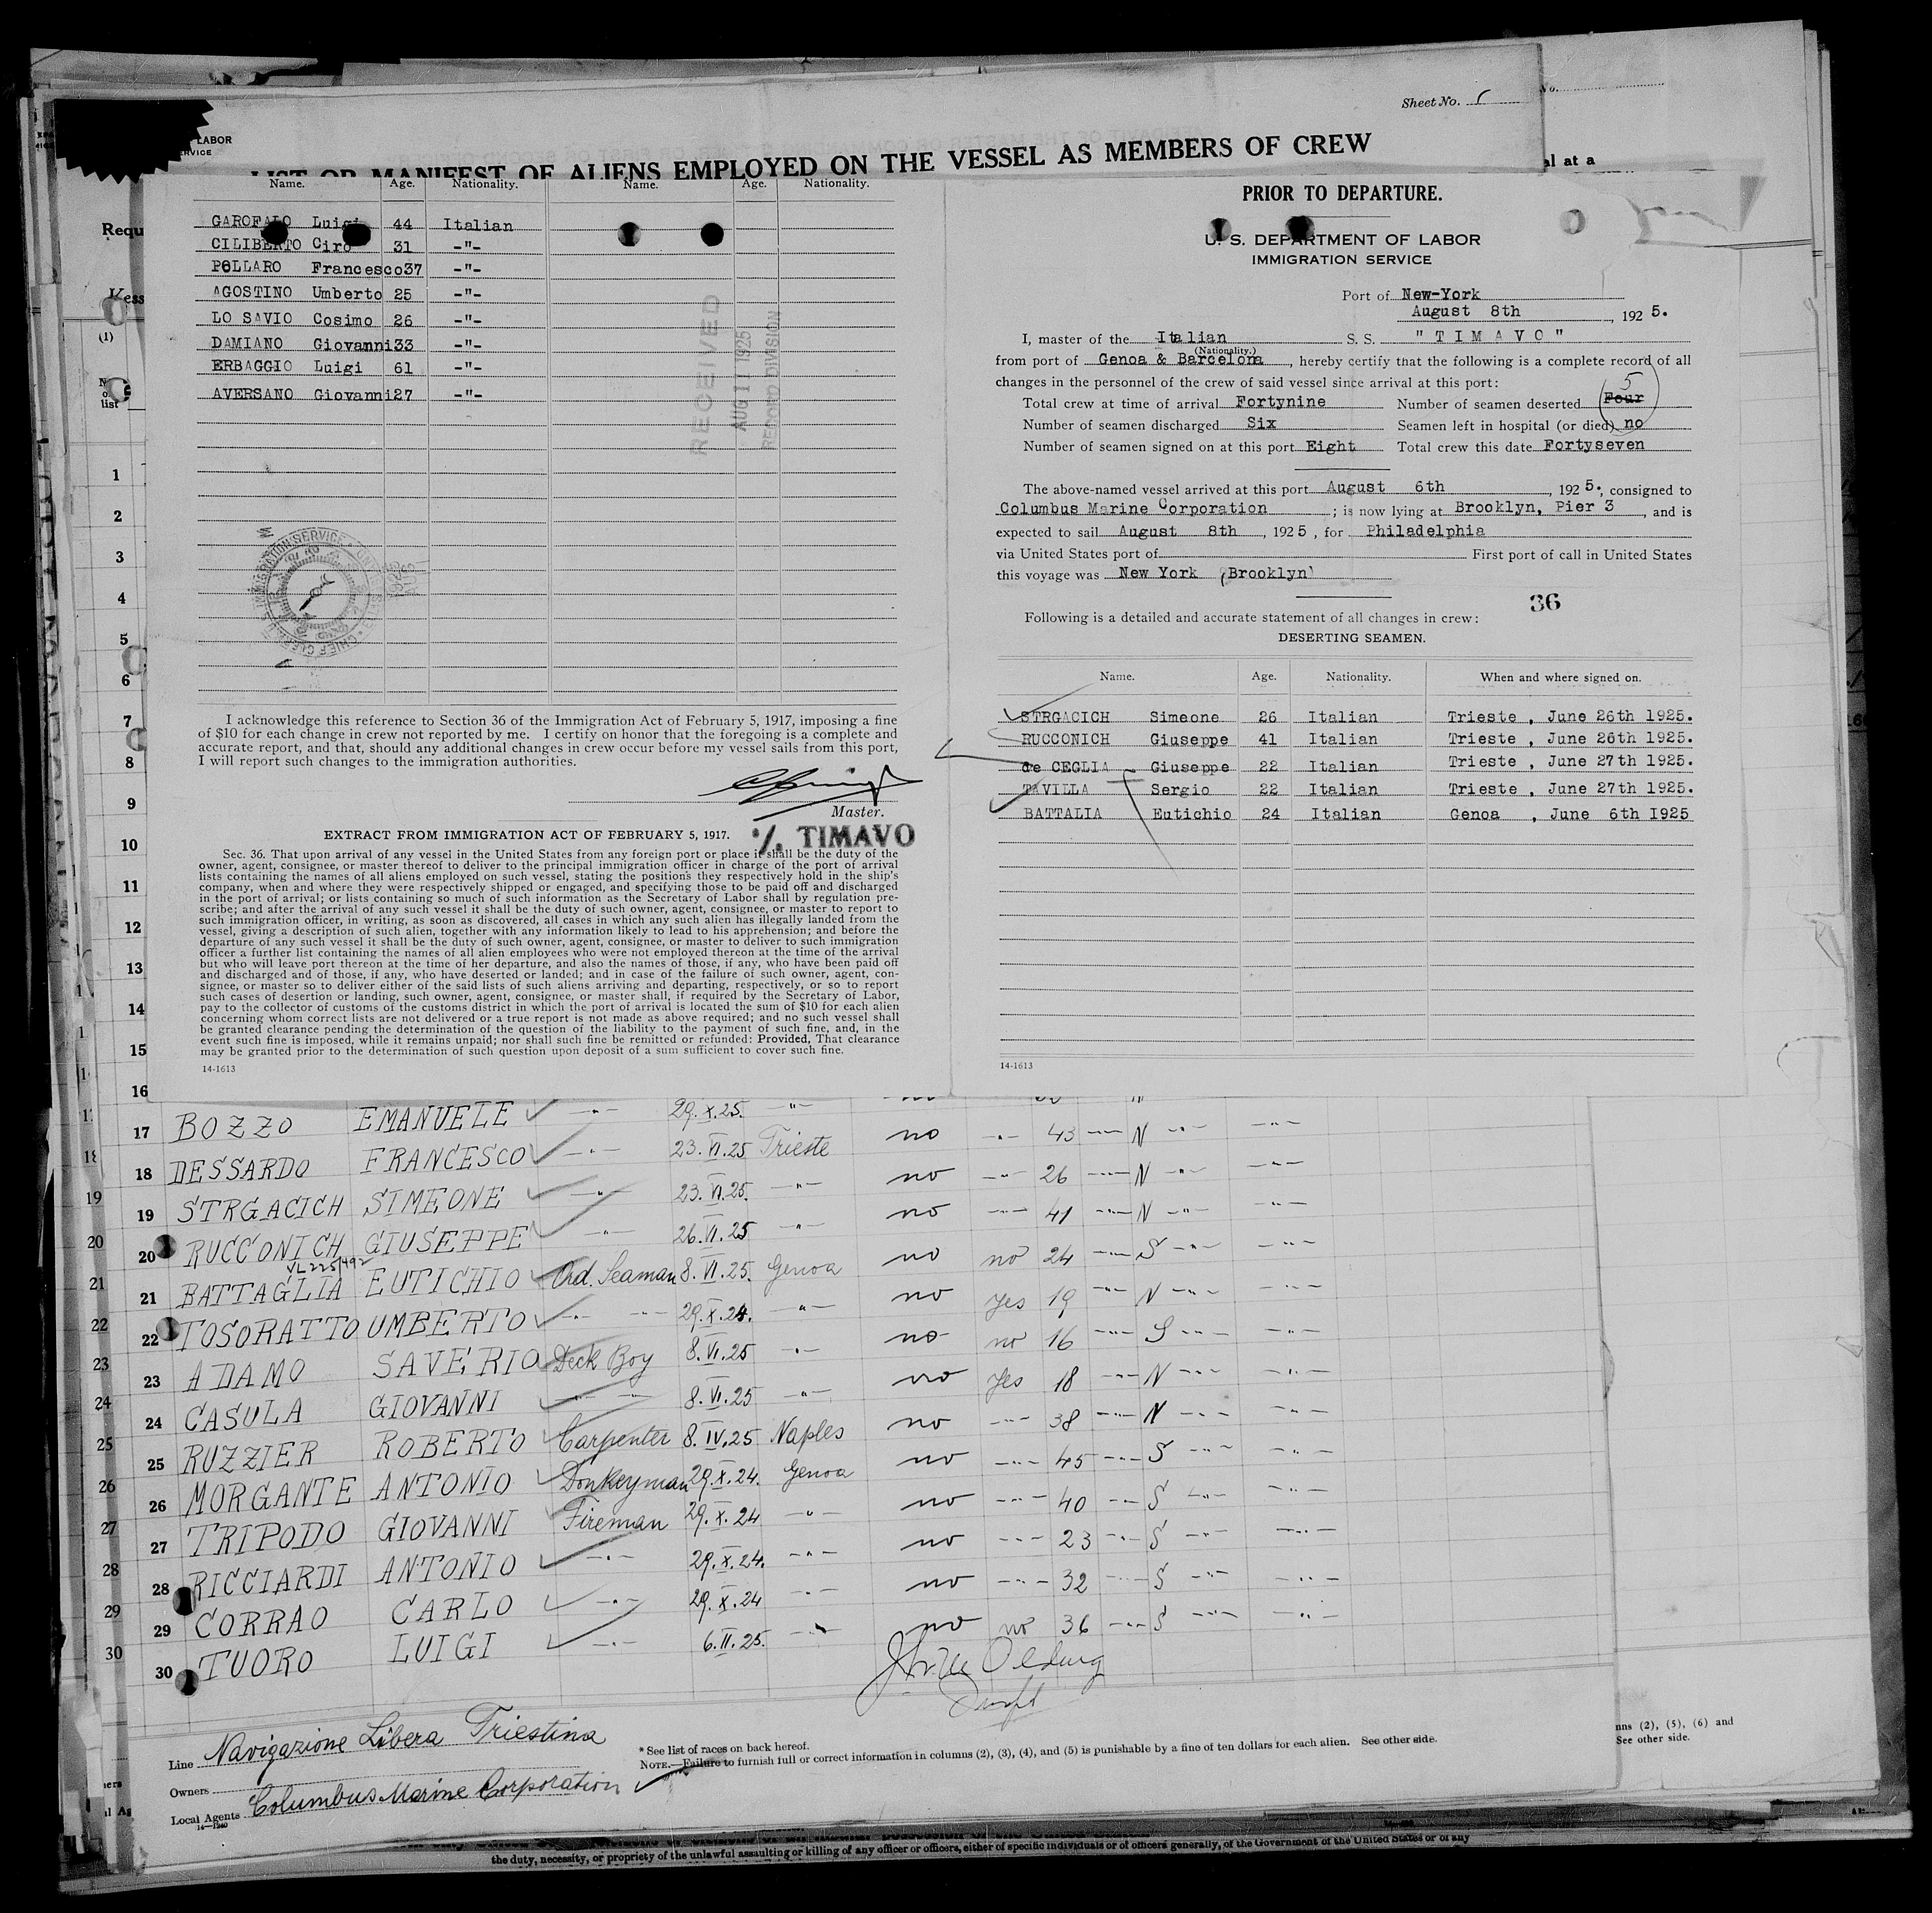 Sheet No. 1
No.
LABOR
SERVICE
LIST OR MANIFEST OF ALIENS EMPLOYED ON THE VESSEL AS MEMBERS OF CREW
al at a
Requ
Vess
(1)
list
Name. Age. Nationality. Name. Age. Nationality.
GAROFALO Luigi 44 Italian
CILIBERTO Ciro 31 -"-
POLLARO Francesco 37 -"-
AGOSTINO Umberto 25 -"-
LO SAVIO Cosimo 26 -"-
DAMIANO Giovanni 33 -"-
ERBAGGIO Luigi 61 -"-
AVERSANO Giovanni 27 -"-
RECEIVED
AUG 11 1925
RECORD DIVISION
I acknowledge this reference to Section 36 of the Immigration Act of February 5, 1917, imposing a fine
of $10 for each change in crew not reported by me. I certify on honor that the foregoing is a complete and
accurate report, and that, should any additional changes in crew occur before my vessel sails from this port,
I will report such changes to the immigration authorities.
Master.
EXTRACT FROM IMMIGRATION ACT OF FEBRUARY 5, 1917.
TIMAVO
Sec. 36. That upon arrival of any vessel in the United States from any foreign port or place it shall be the duty of the
owner, agent, consignee, or master thereof to deliver to the principal immigration officer in charge of the port of arrival
lists containing the names of all aliens employed on such vessel, stating the positions they respectively hold in the ship's
company, when and where they were respectively shipped or engaged, and specifying those to be paid off and discharged
in the port of arrival; or lists containing so much of such information as the Secretary of Labor shall by regulation pre-
scribe; and after the arrival of any such vessel it shall be the duty of such owner, agent, consignee, or master to report to
such immigration officer, in writing, as soon as discovered, all cases in which any such alien has illegally landed from the
vessel, giving a description of such alien, together with any information likely to lead to his apprehension; and before the
departure of any such vessel it shall be the duty of such owner, agent, consignee, or master to deliver to such immigration
officer a further list containing the names of all alien employees who were not employed thereon at the time of the arrival
but who will leave port thereon at the time of her departure, and also the names of those, if any, who have been paid off
and discharged and of those, if any, who have deserted or landed; and in case of the failure of such owner, agent, con-
signee, or master so to deliver either of the said lists of such aliens arriving and departing, respectively, or so to report
such cases of desertion or landing, such owner, agent, consignee, or master shall, if required by the Secretary of Labor,
pay to the collector of customs of the customs district in which the port of arrival is located the sum of $10 for each alien
concerning whom correct lists are not delivered or a true report is not made as above required; and no such vessel shall
be granted clearance pending the determination of the question of the liability to the payment of such fine, and, in the
event such fine is imposed, while it remains unpaid; nor shall such fine be remitted or refunded: Provided, That clearance
may be granted prior to the determination of such question upon deposit of a sum sufficient to cover such fine.
14-1613
PRIOR TO DEPARTURE.
U. S. DEPARTMENT OF LABOR
IMMIGRATION SERVICE
Port of New-York
August 8th, 1925.
I, master of the Italian S. S. "TIMAVO"
(Nationality.)
from port of Genoa & Barcelona, hereby certify that the following is a complete record of all
changes in the personnel of the crew of said vessel since arrival at this port:
5
Total crew at time of arrival Fortynine Number of seamen deserted Four
Number of seamen discharged Six Seamen left in hospital (or died) no
Number of seamen signed on at this port Eight Total crew this date Fortyseven
The above-named vessel arrived at this port August 6th, 1925., consigned to
Columbus Marine Corporation ; is now lying at Brooklyn, Pier 3, and is
expected to sail August 8th, 1925, for Philadelphia
via United States port of First port of call in United States
this voyage was New York (Brooklyn)
36
Following is a detailed and accurate statement of all changes in crew:
DESERTING SEAMEN.
Name. Age. Nationality. When and where signed on.
STRGACICH Simeone 26 Italian Trieste, June 26th 1925.
RUCCONICH Giuseppe 41 Italian Trieste, June 26th 1925.
de CEGLIA Giuseppe 22 Italian Trieste, June 27th 1925.
TAVILLA Sergio 22 Italian Trieste, June 27th 1925.
BATTALIA Eutichio 24 Italian Genoa, June 6th 1925
14-1613
1
2
3
4
5
6
7
8
9
10
11
12
13
14
15
16
17 BOZZO EMANUELE -"- 29.X.25. -"- no -"- 43 -"- N -"- -"-
18 DESSARDO FRANCESCO -"- 23.VI.25 Trieste no -"- 26 -"- N -"- -"-
19 STRGACICH SIMEONE -"- 23.VI.25. -"- no -"- 41 -"- N -"- -"-
20 RUCCONICH GIUSEPPE -"- 26.VI.25 -"- no no 24 -"- S -"- -"-
21 BATTAGLIA EUTICHIO Ord. Seaman 8.VI.25. Genoa no yes 19 -"- N -"- -"-
22 TOSORATTO UMBERTO -"- -"- 29.X.24. -"- no no 16 -"- S -"- -"-
23 ADAMO SAVERIO Deck Boy 8.VI.25 -"- no yes 18 -"- N -"- -"-
24 CASULA GIOVANNI -"- -"- 8.VI.25 -"- no -"- 38 -"- N -"- -"-
25 RUZZIER ROBERTO Carpenter 8.IV.25 Naples no -"- 45 -"- S -"- -"-
26 MORGANTE ANTONIO Donkeyman 29.X.24. Genoa no -"- 40 -"- S -"- -"-
27 TRIPODO GIOVANNI Fireman 29.X.24 -"- no -"- 23 -"- S -"- -"-
28 RICCIARDI ANTONIO -"- 29.X.24. -"- no -"- 32 -"- S -"- -"-
29 CORRAO CARLO -"- 29.X.24 -"- no no 36 -"- S -"- -"-
30 TUORO LUIGI -"- 6.II.25. -"-
Line Navigazione Libera Triestina
Owners
Local Agents Columbus Marine Corporation
14-1240
* See list of races on back hereof.
NOTE.—Failure to furnish full or correct information in columns (2), (3), (4), and (5) is punishable by a fine of ten dollars for each alien. See other side.
nns (2), (5), (6) and
See other side.
the duty, necessity, or propriety of the unlawful assaulting or killing of any officer or officers, either of specific individuals or of officers generally, of the Government of the United States or of any